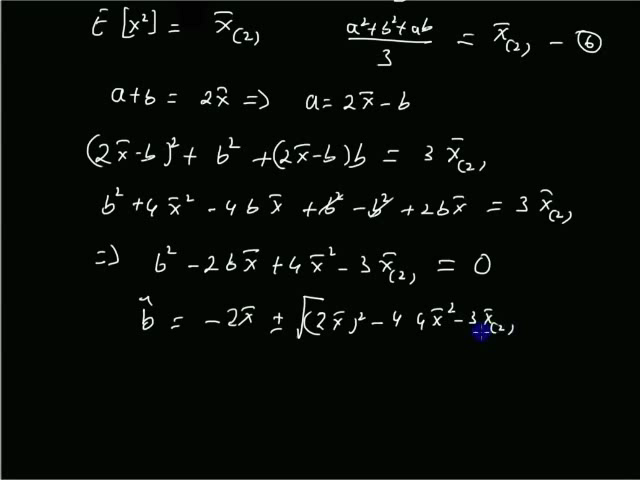 E [x²] = x̄₍₂₎   (a²+b²+ab)/3 = x̄₍₂₎ – ⑥
a+b = 2x̄ => a = 2x̄ – b
(2x̄–b)² + b² + (2x̄–b)b = 3 x̄₍₂₎
b² + 4x̄² – 4bx̄ + b² – b² + 2bx̄ = 3 x̄₍₂₎
=> b² – 2bx̄ + 4x̄² – 3x̄₍₂₎ = 0
b̂ = –2x̄ ± √(2x̄)² – 4 4x̄² – 3x̄₍₂₎